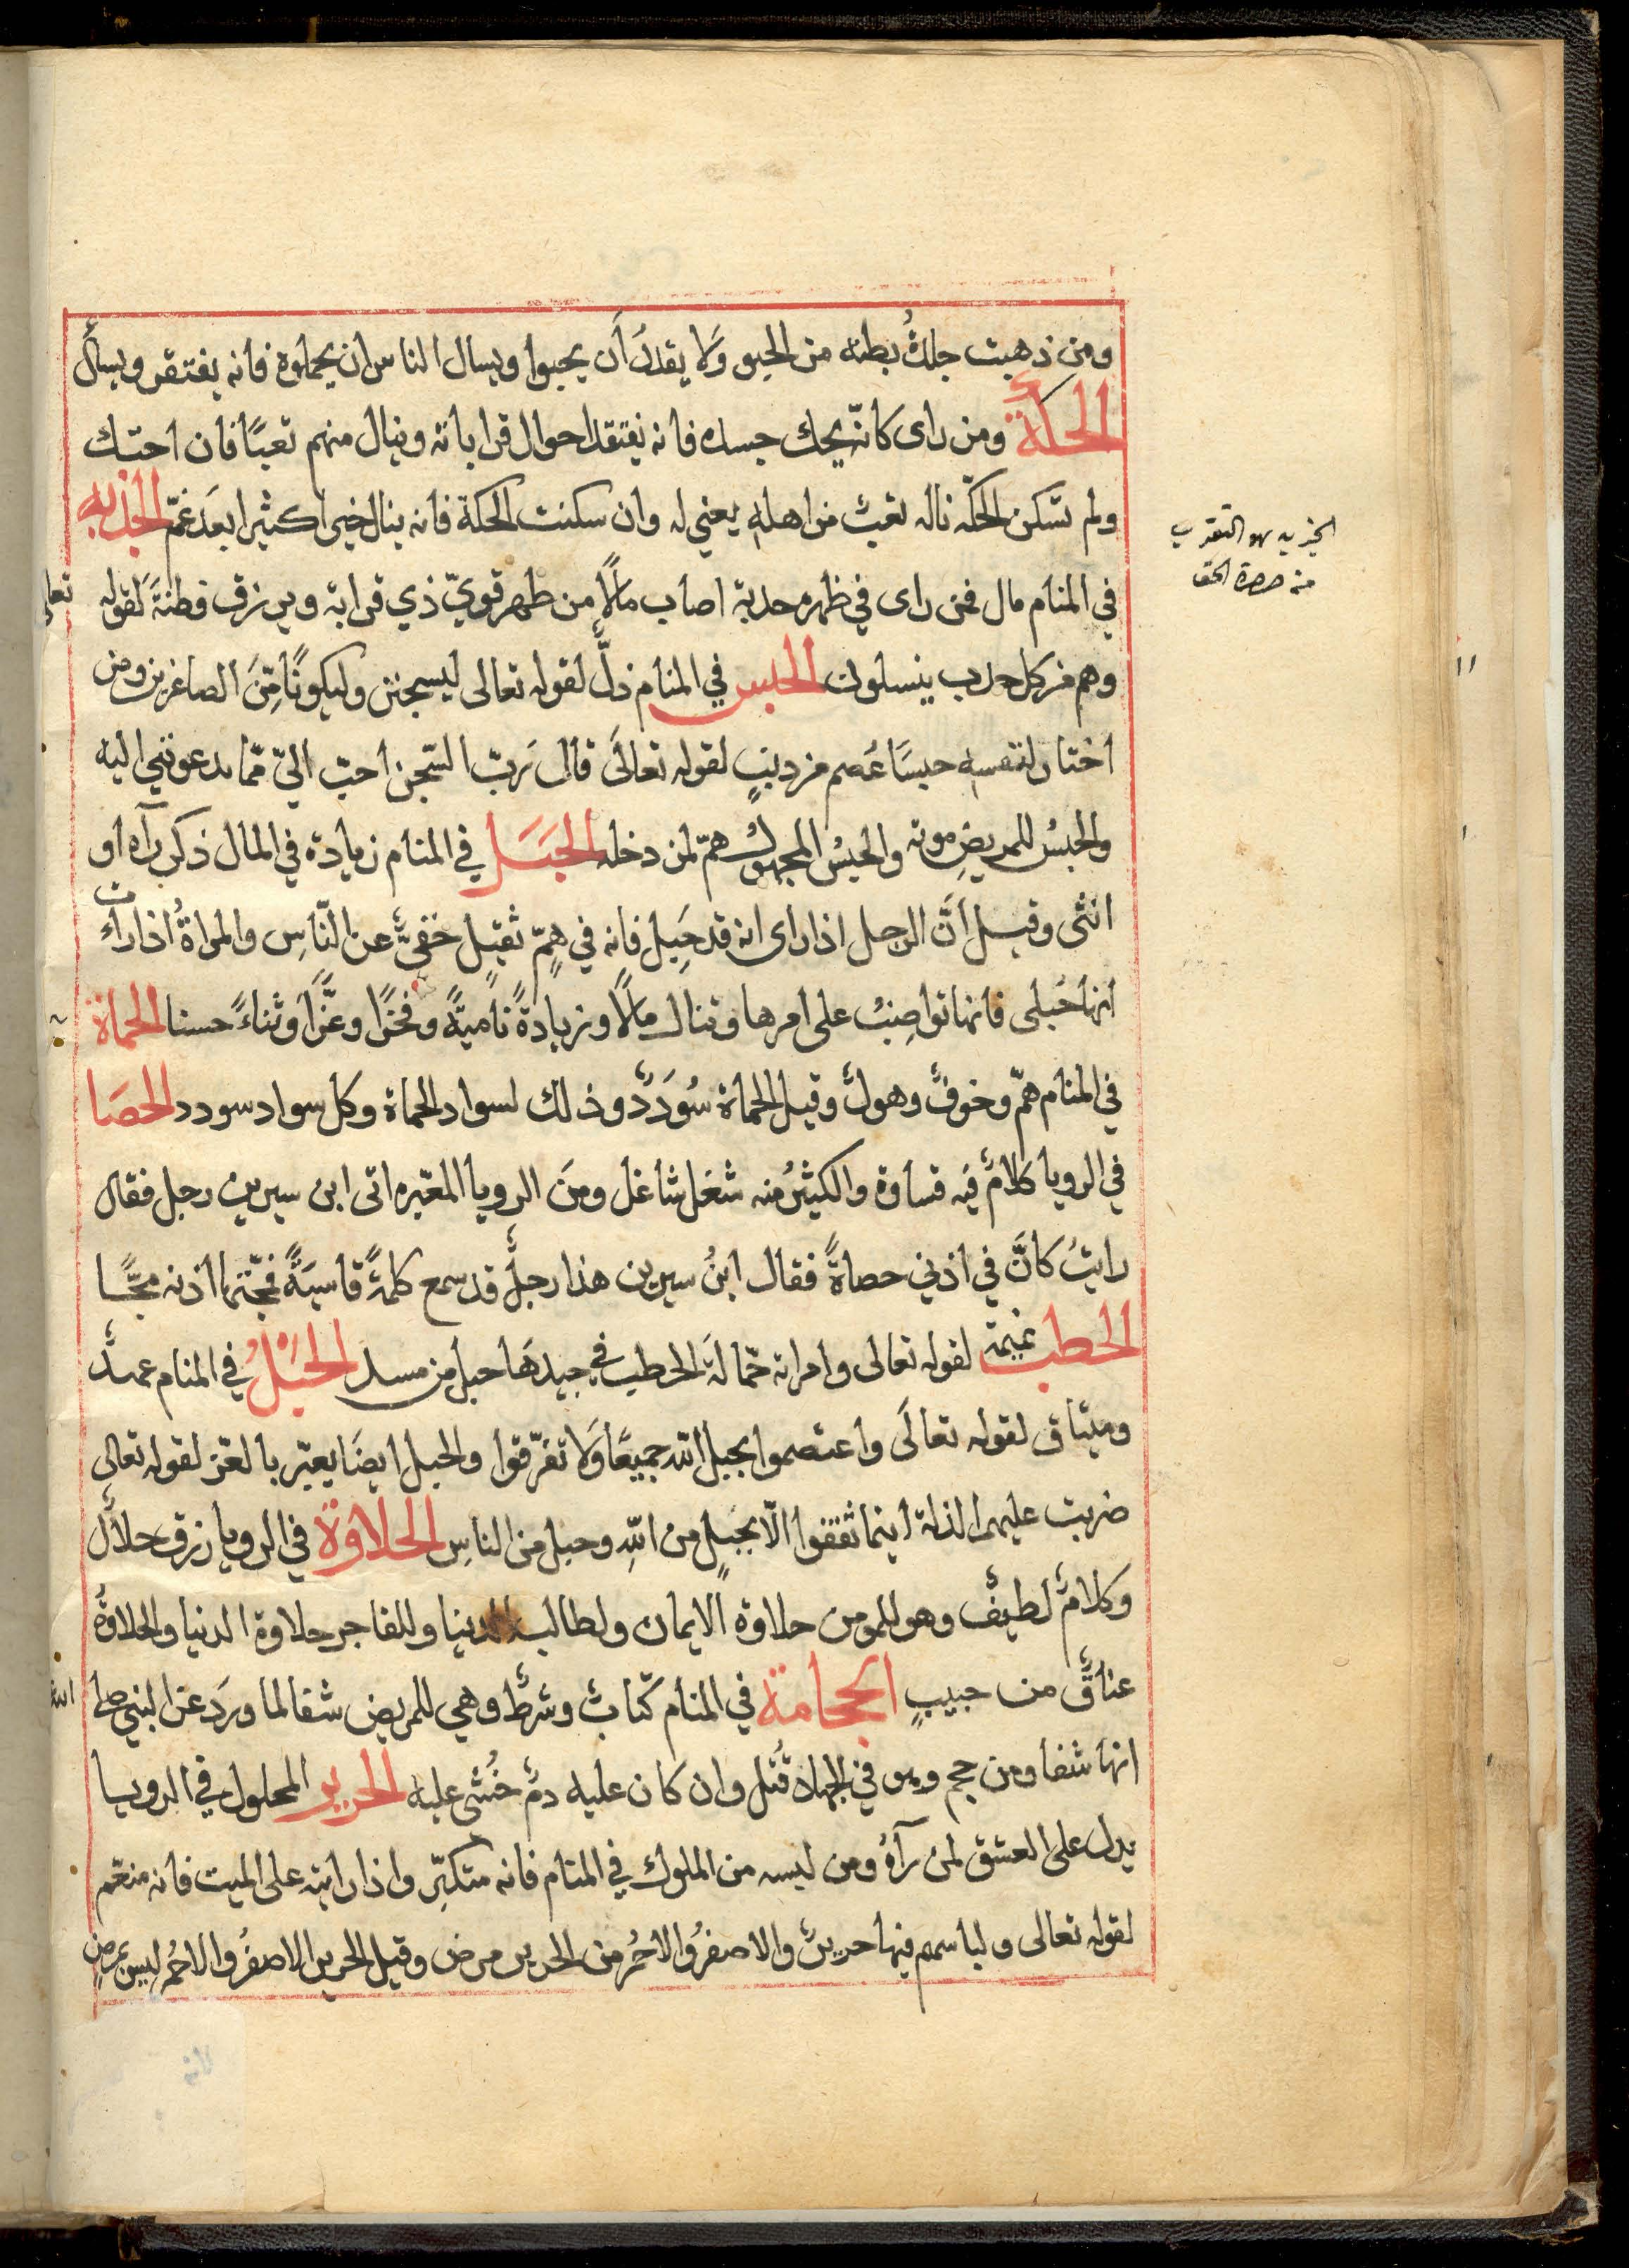 ومن ذهبت جلدُ بطنه من الحبو وَلا يقدرُ أَن يحبوا ويسال الناس ان يحملوه فانه يفتقر ويسأل
الحكّة ومن راى كانّه يحك جسده فانه يفتقد احوال قراباته وينال منهم تعبًا فان احتك
ولم تسكن الحكّه ناله تعبٌ من اهله يعني له وان سكنت الحكة فانه ينال خيرا كثيرا بعدَ غمّ الحدبه
في المنام مال فمن راى في ظهره حدبة اصاب مالًا من ظهر قويّ ذي قرابة ويرزق فطنةً لقوله تعالى
وهم من كل حدب ينسلون الحبس في المنام ذلٌّ لقوله تعالى ليسجنن وليكونًا مِّنَ الصاغرين ومن
اختار لنفسه حبسًا عُصم من ذنبٍ لقوله تعالَى قال رَبّ السّجن احبّ اليّ ممّا يدعونني اليه
والحبسُ للمريضِ موته والحبسُ المجهولُ همّ لمن دخله الحَبَل في المنام زيادة في المال ذكر رآه او
انثى وقيل أنَّ الرجل اذا راى انه قد حَبِل فانه في همٍّ ثقيلٍ خفيٍّ عن النّاسِ والمراةُ اذا رات
انها حُبلى فانها تواضبُ على امرها وتنال مالًا وزيادةً ناميةً وفخرًا وعزًّا وثناءً حسنا الحماة
في المنام همّ وخوفٌ وهولٌ وقيل الحماة سُودَدٌ وذلك لسواد الحماة وكل سواد سودد الحصَا
في الرويا كلامٌ فيه قساوة والكثيرُ منه شغل شاغل ومنَ الرويا المعبّره اتى ابن سيرين رجل فقال
رايتُ كانَّ في اذني حصاةً فقال ابنُ سيرين هذا رجلٌ قد سمع كلمةً قاسيةً فمجّتها اذنه مجًّا
الحطب نميمة لقوله تعالى وامراته حمّالةَ الحطب في جيدهَا حبل من مسد الحَبْلُ في المنام عهدٌ
وميثاق لقوله تعالَى واعتصموا بحبل الله جميعًا وَلا تفرّقوا والحبل ايضَا يعبّر بالعزّ لقوله تعالى
ضربت عليهم الذلة اينما ثقفوا الّا بحبلٍ من اللهِ وحبل من الناسِ الحلاوة في الرويا رزق حلالٌ
وكلامٌ لطيفٌ وهو للمومن حلاوة الايمان ولطالب الدنيا وللفاجر حلاوة الدنيا والحلاوةُ
عناقٌ من حبيبٍ الحجامة في المنام كتابٌ وشرطٌ وهي للمريض شفا لما ورَد عن النبي صلى الله
انها شفا ومن حجم وهو في الجهاد قُتل وان كان عليه دمٌ خُشى عليه الحرير المحلول في الرويا
يدل على العشق لمن رآهُ ومن لبسه من الملوك في المنام فانه متكبّر واذا رايته على الميت فانه منعّم
لقوله تعالى ولباسهم فيها حريرٌ والاصفرُ والاحمُر من الحرير مرض وقيل الحرير الاصفرُ والاحمر ليس بمرضٍ
منه حضرة الحق